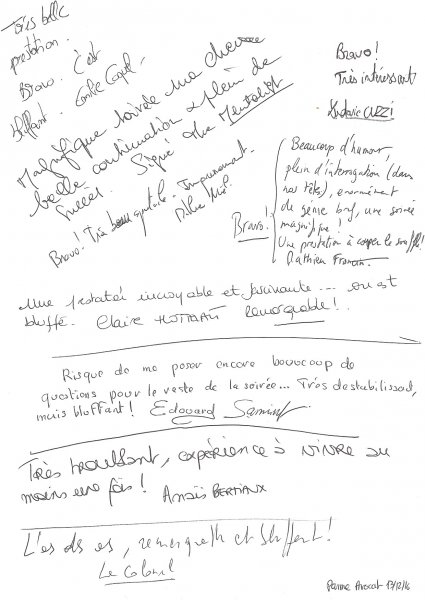 Très belle
prestation.
Bravo. C'est
bluffant.
Magnifique soirée ma cherie
belle continuation & plein de
succès. Signé the Mentalist
Bravo! Très beau spectacle. Impressionnant.
Bravo!
Très intéressant
Ludovic CUZZI
Beaucoup d'humour,
plein d'interrogation (dans
nos têtes), enormément
de génie bref, une soirée
magnifique!
Une prestation à couper le souffle!
Bravo!
Mathieu
Une incroyable et fascinante ... on est
bluffé. Claire remarquable!
Risque de me poser encore beaucoup de
questions pour le reste de la soirée... Très destabilisant,
mais bluffant! Edouard
Très troublant, expérience à vivre au
moins une fois! Anaïs BERTIAUX
L'as des as, et bluffant!
Le Colonel
17/12/16